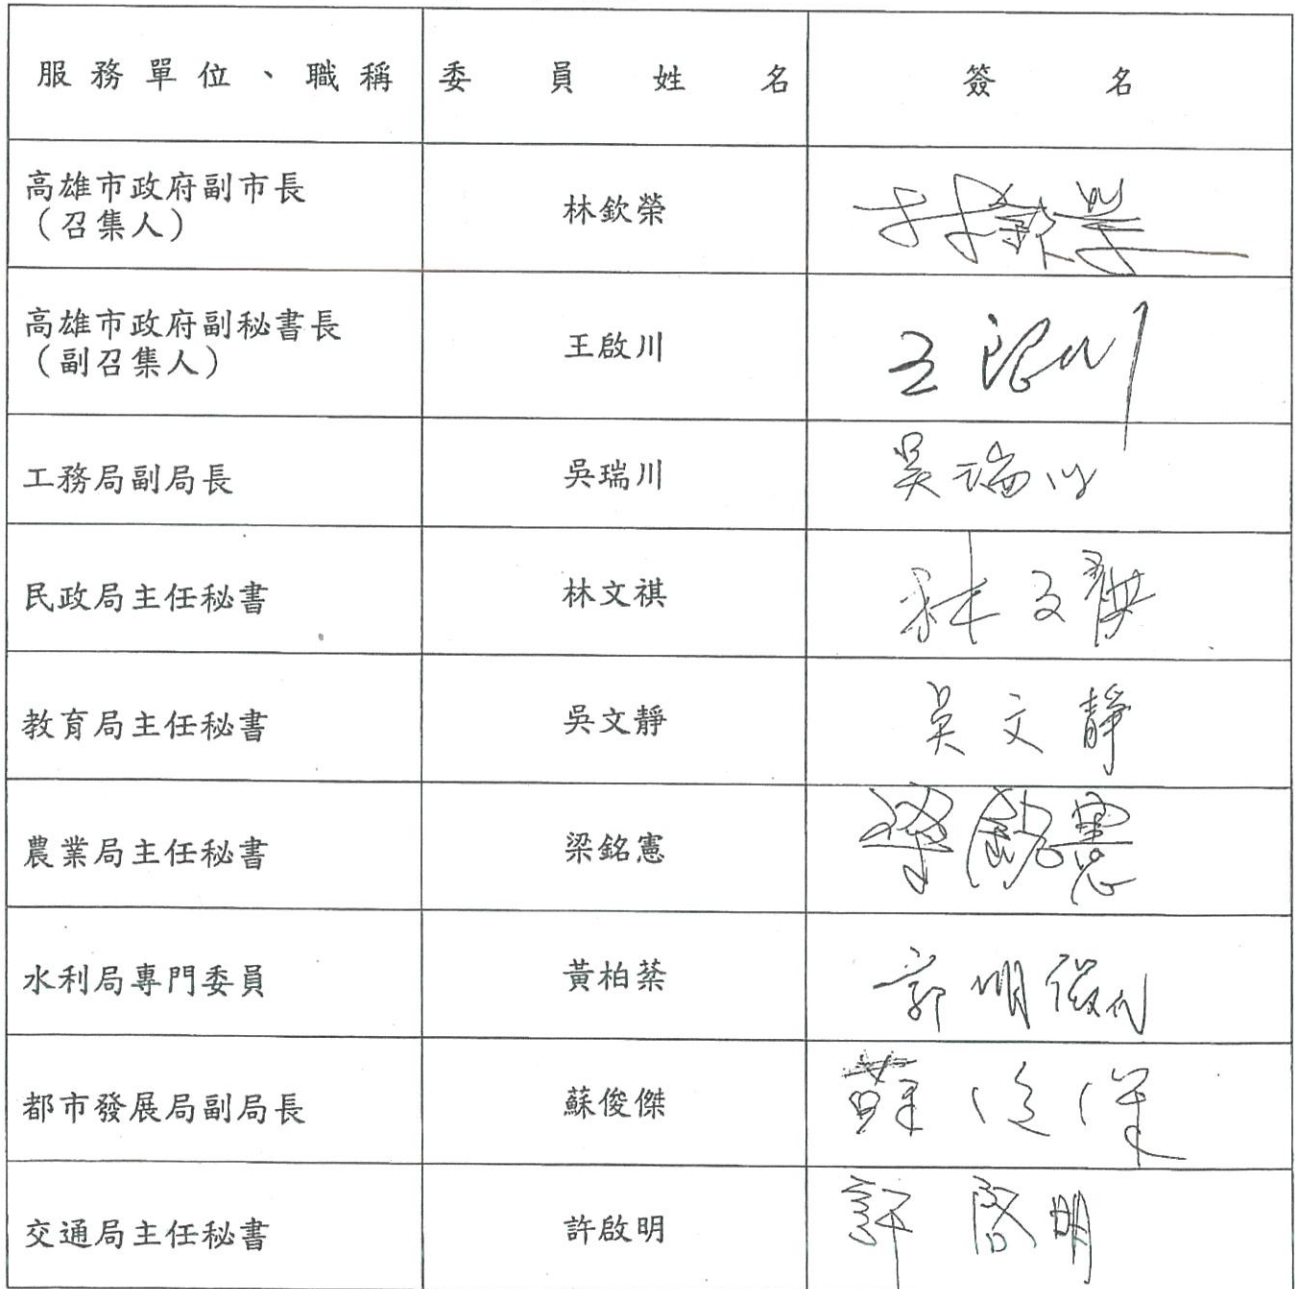 服務單位、職稱 委員姓名 簽名
高雄市政府副市長
（召集人） 林欽榮 林欽榮
高雄市政府副秘書長
（副召集人） 王啟川 王啟川
工務局副局長 吳瑞川 吳瑞川
民政局主任秘書 林文祺 林文祺
教育局主任秘書 吳文靜 吳文靜
農業局主任秘書 梁銘憲 梁銘憲
水利局專門委員 黃柏棻 郭明
都市發展局副局長 蘇俊傑 蘇俊傑
交通局主任秘書 許啟明 許啟明